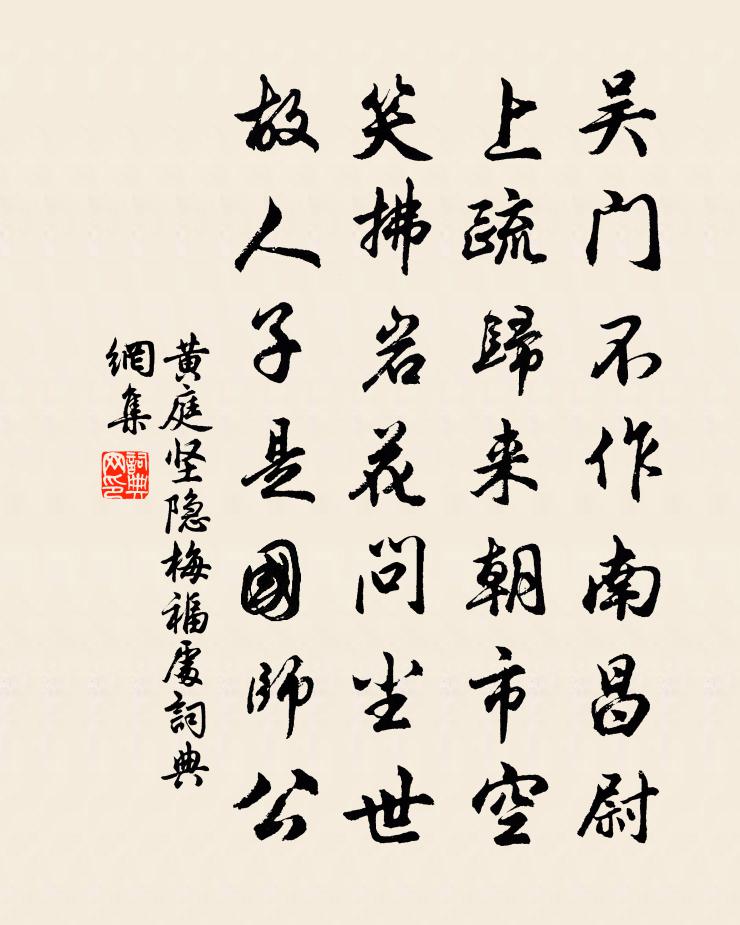 吴门不作南昌尉
上疏歸来朝市空
笑拂岩花问尘世
故人子是國師公
黄庭坚隐梅福處詞典
網集
詞典网印